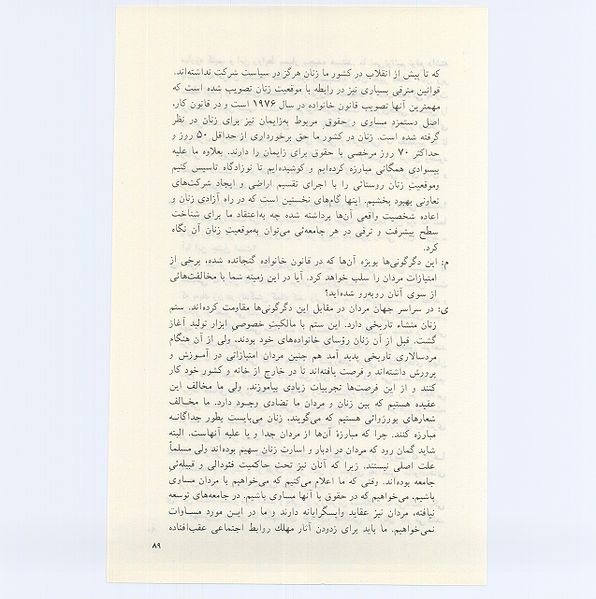 که تا پیش از انقلاب در کشور ما زنان هرگز در سیاست شرکت نداشته‌اند.
قوانین مترقی بسیاری نیز در رابطه با موقعیت زنان تصویب شده است که
مهمترین آنها تصویب قانون خانواده در سال ۱۹۷۶ است و در قانون کار،
اصل دستمزد مساوی و حقوق مربوط به‌زایمان نیز برای زنان در نظر
گرفته شده است. زنان در کشور ما حق برخورداری از حداقل ۵۰ روز و
حداکثر ۷۰ روز مرخصی با حقوق برای زایمان را دارند. بعلاوه ما علیه
بیسوادی همگانی مبارزه کرده‌ایم و کوشیده‌ایم تا نوزادگاه تاسیس کنیم
وموقعیت زنان روستائی را با اجرای تقسیم اراضی و ایجاد شرکت‌های
تعاونی بهبود بخشیم. اینها گام‌های نخستین است که در راه آزادی زنان و
اعاده شخصیت واقعی آن‌ها برداشته شده چه به‌اعتقاد ما برای شناخت
سطح پیشرفت و ترقی در هر جامعه‌ئی می‌توان به‌موقعیت زنان آن نگاه
کرد.
م: این دگرگونی‌ها بویژه آن‌ها که در قانون خانواده گنجانده شده، برخی از
امتیازات مردان را سلب خواهد کرد. آیا در این زمینه شما با مخالفت‌هائی
از سوی آنان روبه‌رو شده‌اید؟
ی: در سراسر جهان مردان در مقابل این دگرگونی‌ها مقاومت کرده‌اند. ستم
زنان منشاء تاریخی دارد. این ستم با مالکیت خصوصی ابزار تولید آغاز
گشت. قبل از آن زنان رؤسای خانواده‌های خود بودند. ولی از آن هنگام
مردسالاری تاریخی پدید آمد هم چنین مردان امتیازاتی در آموزش و
پرورش داشته‌اند و فرصت یافته‌اند تا در خارج از خانه و کشور خود کار
کنند و از این فرصت‌ها تجربیات زیادی بیاموزند. ولی ما مخالف این
عقیده هستیم که بین زنان و مردان ما تضادی وجود دارد. ما مخالف
شعارهای بورژوائی هستیم که می‌گویند، زنان می‌بایست بطور جداگانه
مبارزه کنند. چرا که مبارزهٔ آن‌ها از مردان جدا و یا علیه آنهاست. البته
شاید گمان رود که مردان در ادبار و اسارت زنان سهیم بوده‌اند ولی مسلماً
علت اصلی نیستند. زیرا که آنان نیز تحت حاکمیت فئودالی و قبیله‌ئی
جامعه بوده‌اند. وقتی که ما اعلام می‌کنیم که می‌خواهیم با مردان مساوی
باشیم، می‌خواهیم که در حقوق با آنها مساوی باشیم. در جامعه‌های توسعه
نیافته، مردان نیز عقاید واپسگرایانه دارند و ما در این مورد مساوات
نمی‌خواهیم. ما باید برای زدودن آثار مهلك روابط اجتماعی عقب‌افتاده
۸۹